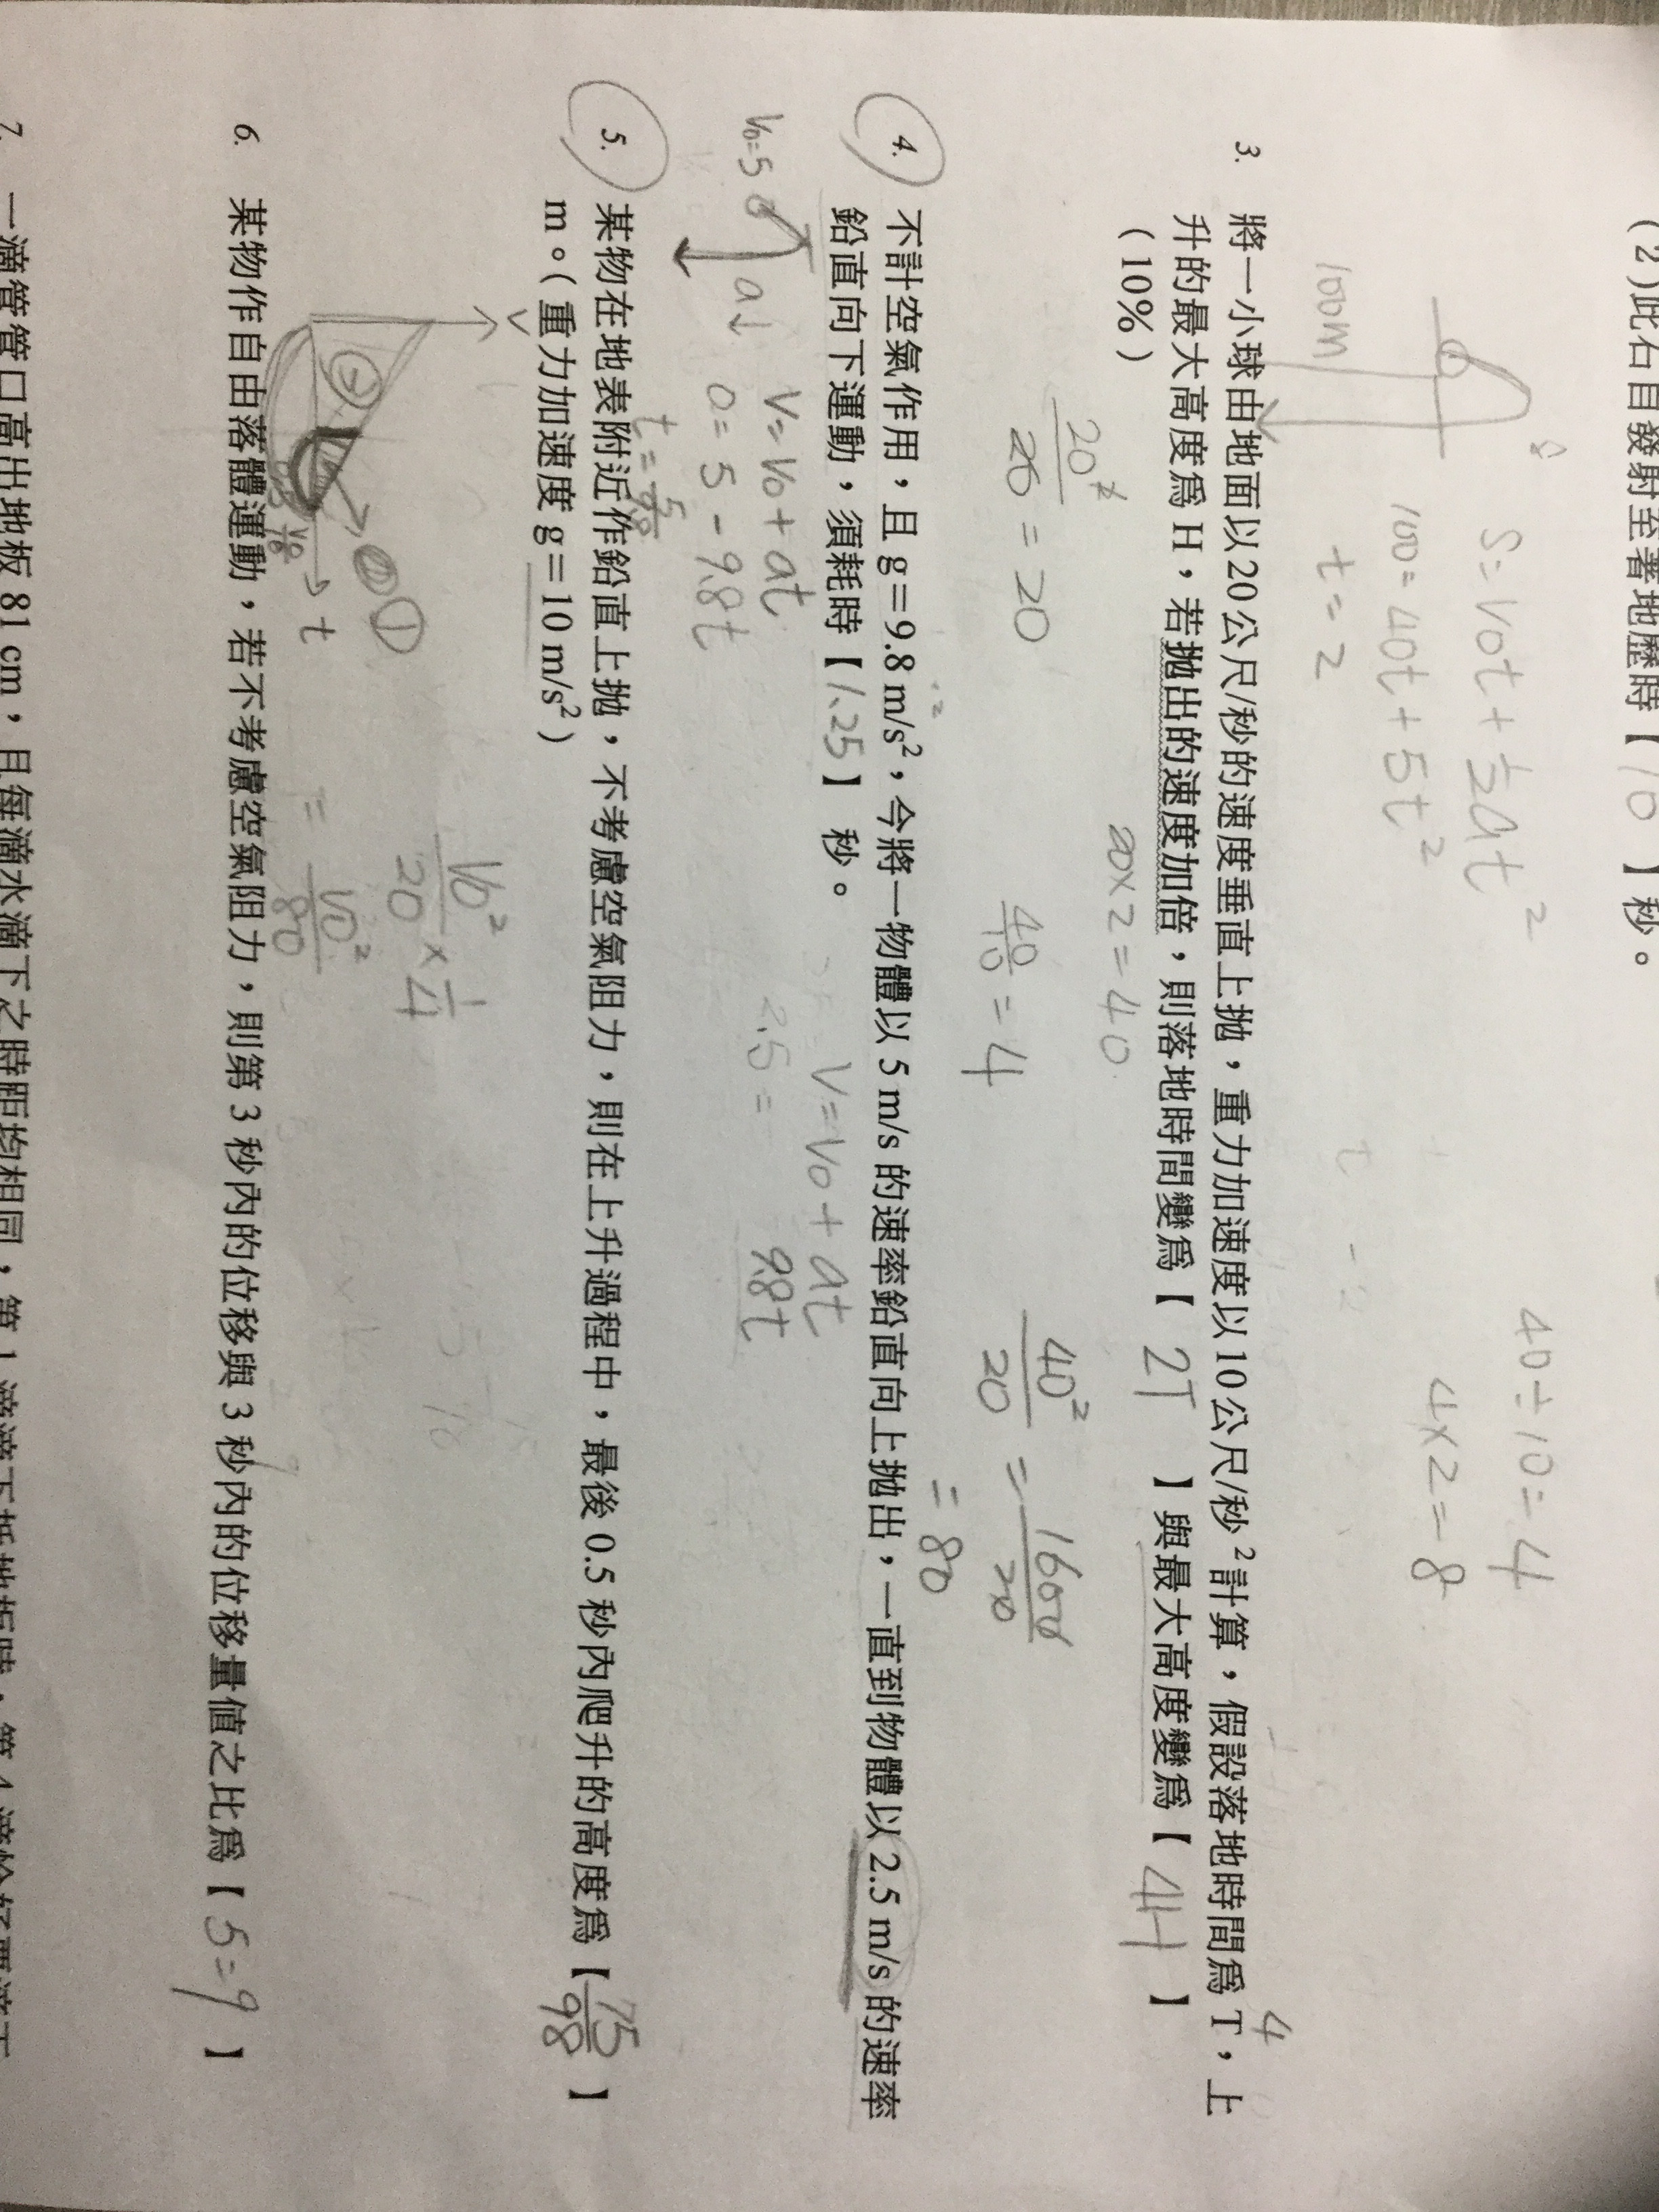 (2)此石自發射至著地歷時【10】秒。
S=V0t+½at²
100=40t+5t²
t=2
100m
40÷10=4
4×2=8
4
3. 將一小球由地面以20公尺/秒的速度垂直上拋，重力加速度以10公尺/秒²計算，假設落地時間為T，上
升的最大高度為H，若拋出的速度加倍，則落地時間變為【2T】與最大高度變為【4H】
(10%)
20×2=40
20²/20=20
40/10=4
40²/20=1600/20
=80
4. 不計空氣作用，且g=9.8 m/s²，今將一物體以5 m/s的速率鉛直向上拋出，一直到物體以2.5 m/s的速率
鉛直向下運動，須耗時【1.25】秒。
V0=5
a↓
V=V0+at
0=5-9.8t
t=5/9.8
V=V0+at
2.5=
9.8t
5. 某物在地表附近作鉛直上拋，不考慮空氣阻力，則在上升過程中，最後0.5秒內爬升的高度為【75/98】
m。(重力加速度g=10 m/s²)
V
②
①
t
V0/10
V0²/20×1/4
=V0²/80
6. 某物作自由落體運動，若不考慮空氣阻力，則第3秒內的位移與3秒內的位移量值之比為【5=9】
7. 一滴管管口高出地板81 cm，且每滴水滴下之時距均相同，第1滴滴下抵地板時，第4滴恰好要滴下